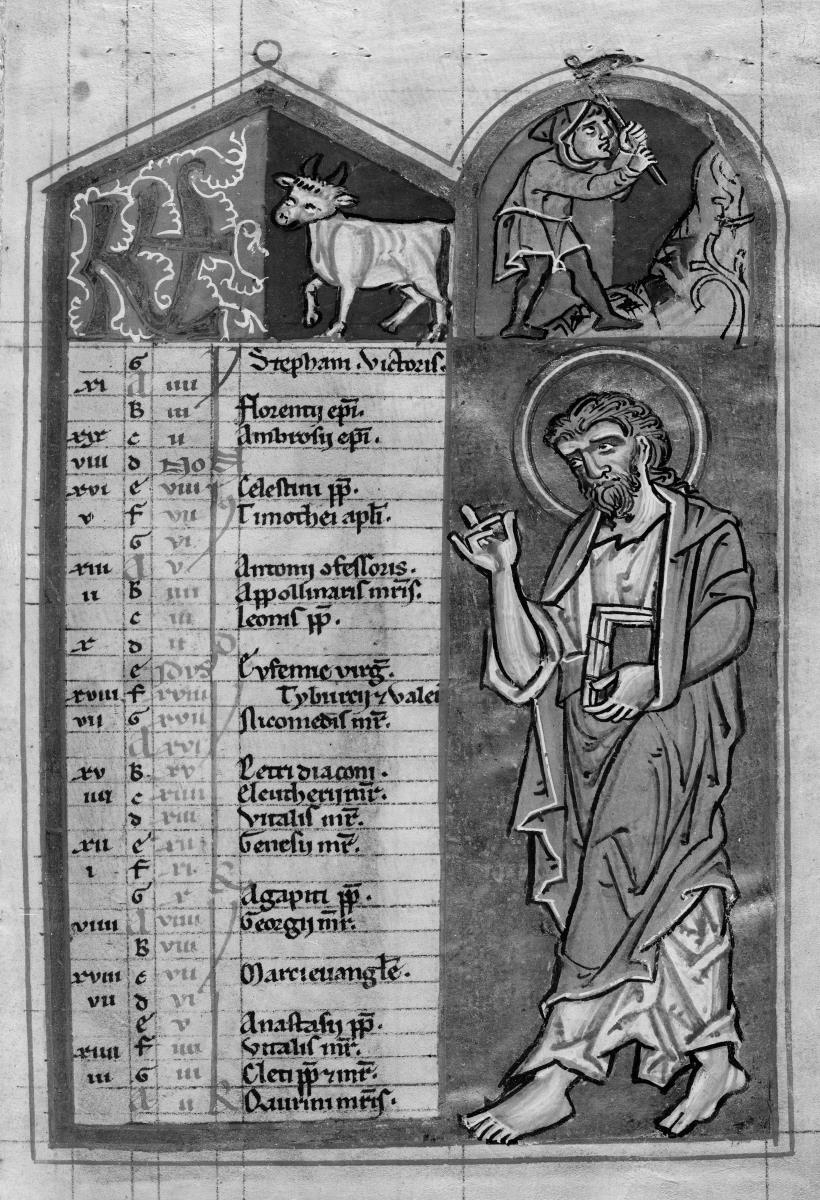 KL
G Stephani . victoris.
xi A iiii
B iii Florentij epi.
xix c ii Ambrosij epi.
viii d No
xvi e viii Celestini pp.
v f vii Timothei apli.
G vi
xiii A v Antonij ofessoris.
ii B iiii Appollinaris mris.
c iii Leonis pp.
x d ii
e Idus Eufemie virg.
xviii f xviii Tyburcij ⁊ valei
vii G xvii Nicomedis mr.
A xvi
xv B xv Petri diaconi .
iiii c xiiii eleutherij mr.
d xiii Vitalis mr.
xii e xii Genesij mr.
i f xi
G x Agapiti pp .
viiii A viiii Georgij mr.
B viii
xviii c vii Marci euangle .
vii d vi
e v Anastasij pp.
xiiii f iiii Vitalis mr.
iii G iii Cleti pp ⁊ mr.
A ii Maurini mris .